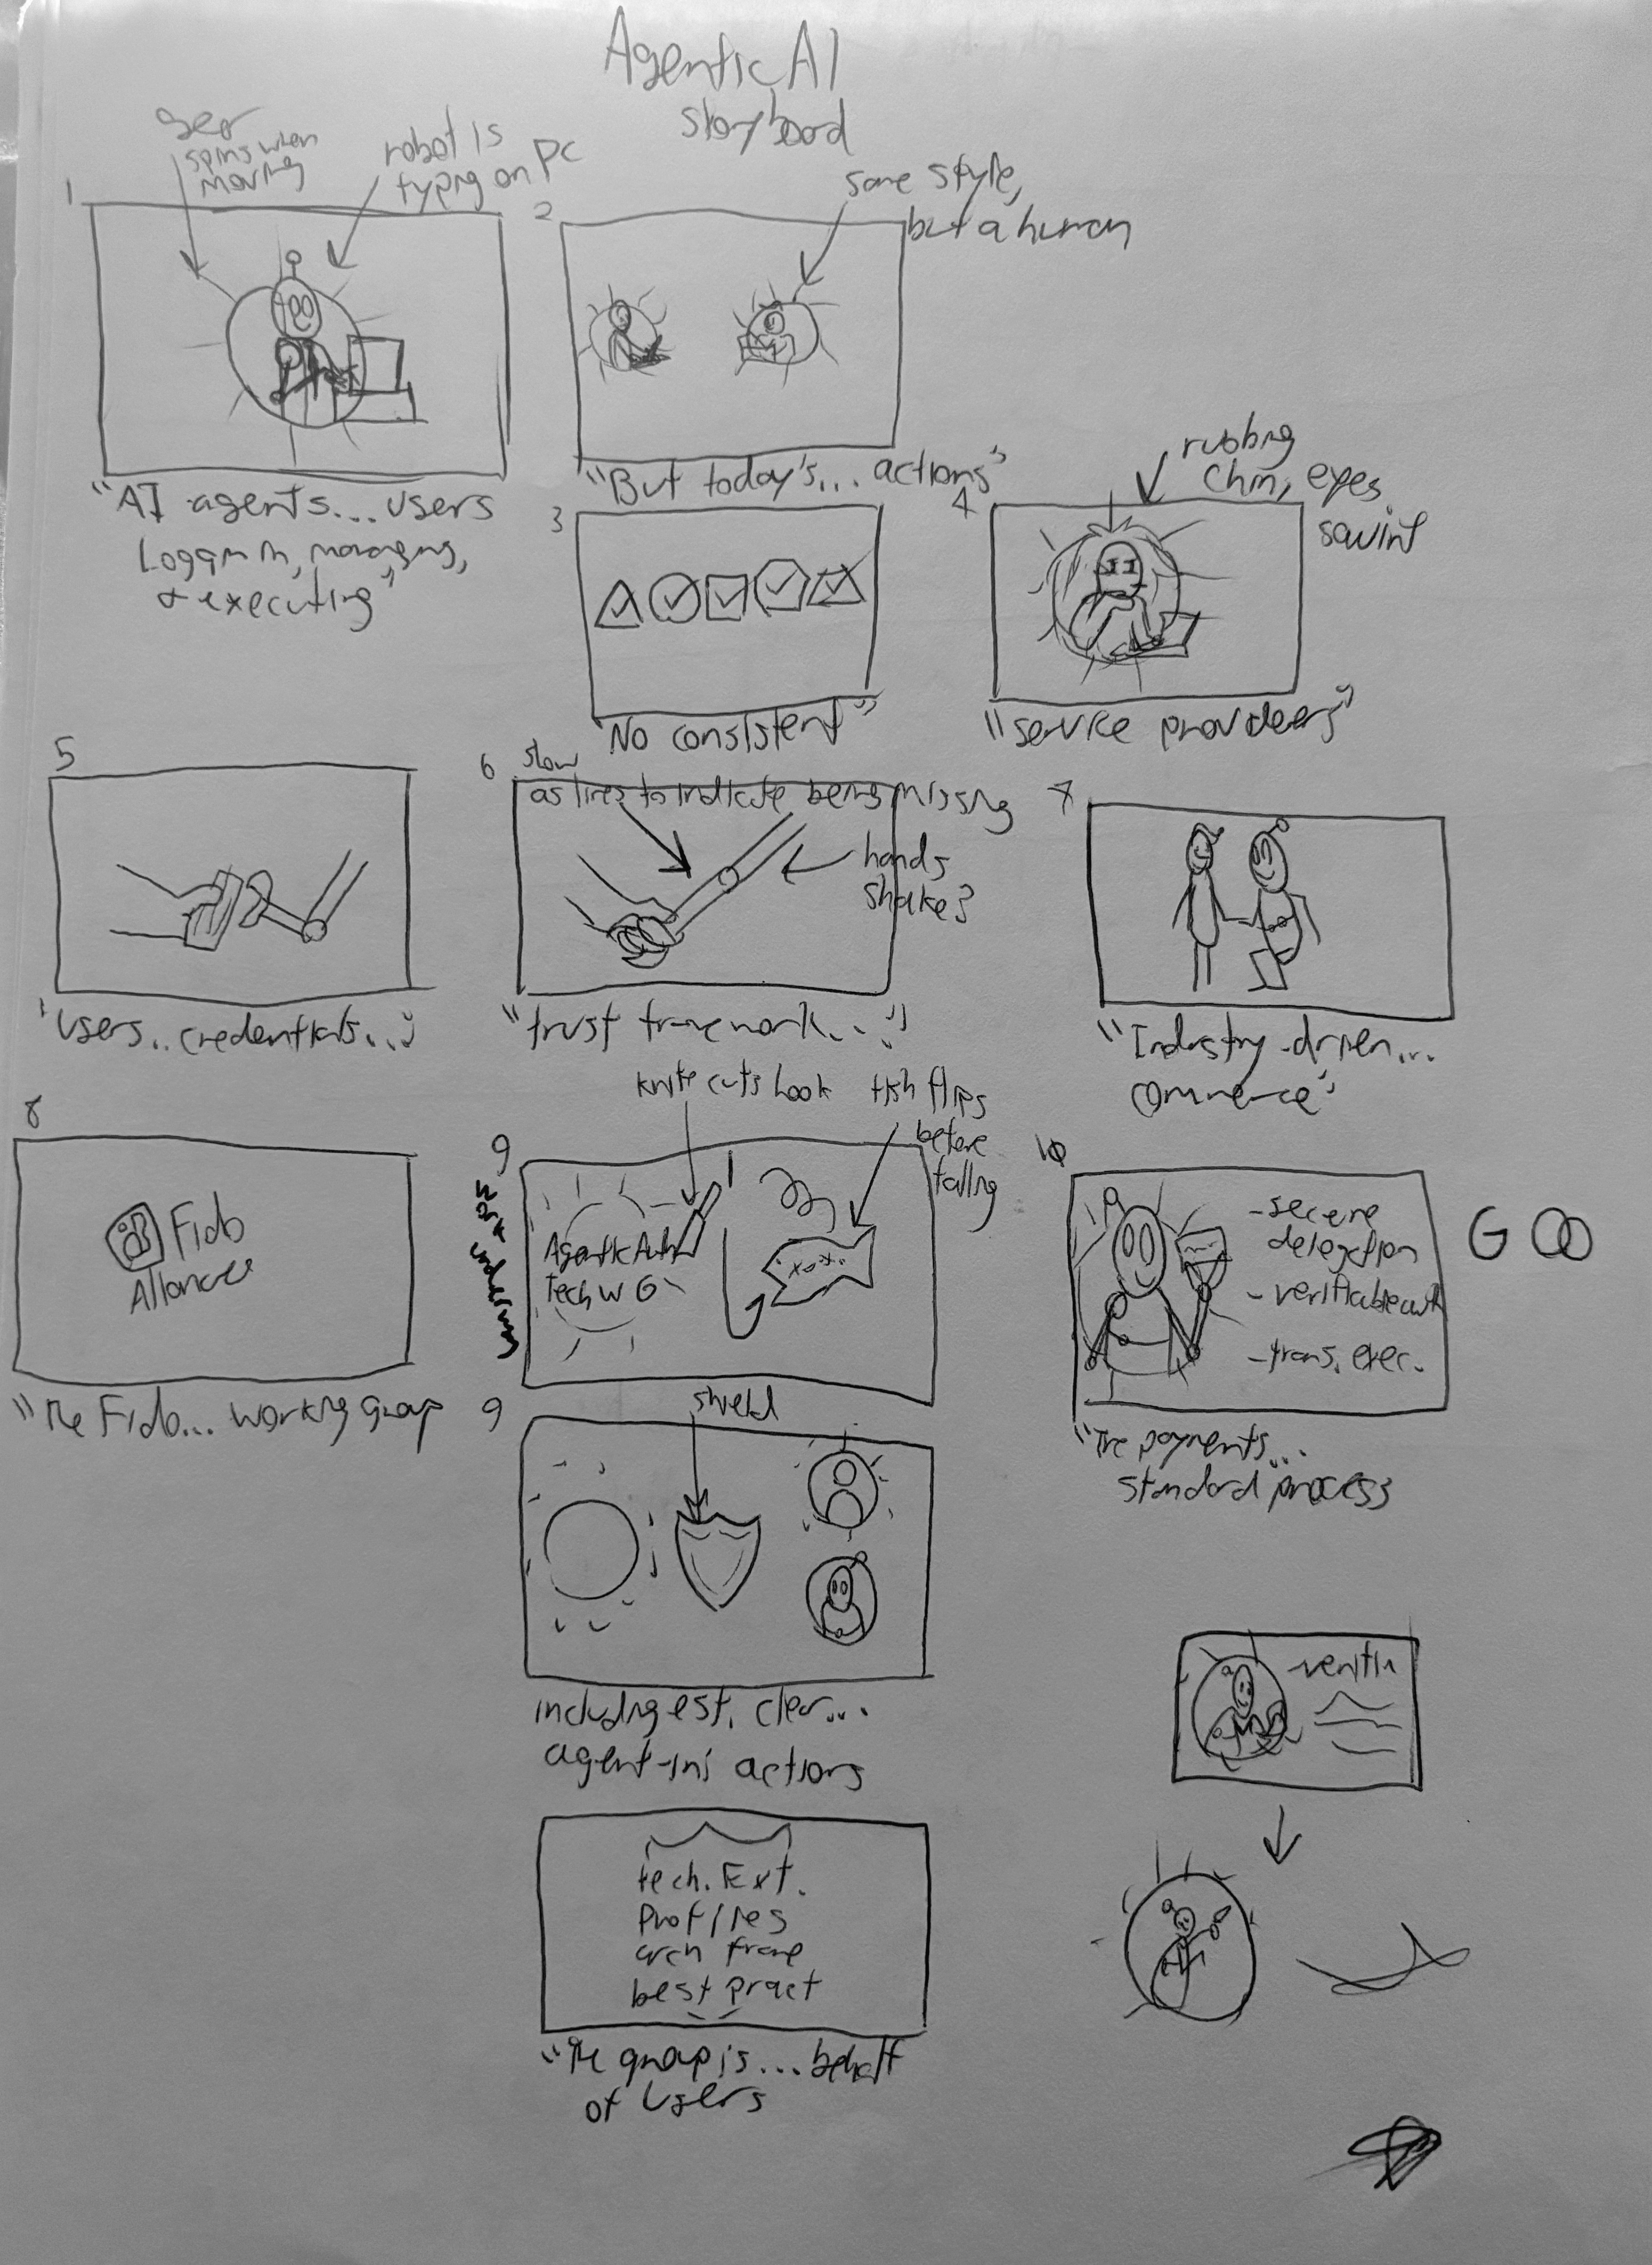 Agentic AI
storyboard
spins when
moving
robot is
typing on PC
same style,
but a human
1
2
"AI agents... users
logging in, managing,
& executing"
"But today's... actions"
rubbing
chin, eyes
squint
3
4
"No consistent"
"service providers"
5
6
as lines to indicate being missing
hands
shake?
7
"users.. credentials..."
"trust framework..."
"Industry-driven...
commerce"
knife cuts hook
fish flips
before
falling
8
Fido
Alliance
"The Fido... working group
9
work underway
Agentic Auth
Tech WG
10
-secure
delegation
-verifiable auth
-trans. exec.
G
"The payments...
standard process
9
shield
including est. clear...
agent-ini actions
tech. Ext.
Profiles
arch frame
best pract
"The group is... behalf
of users